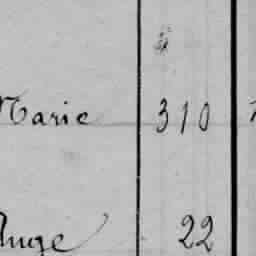 Marie 310
Ange 22